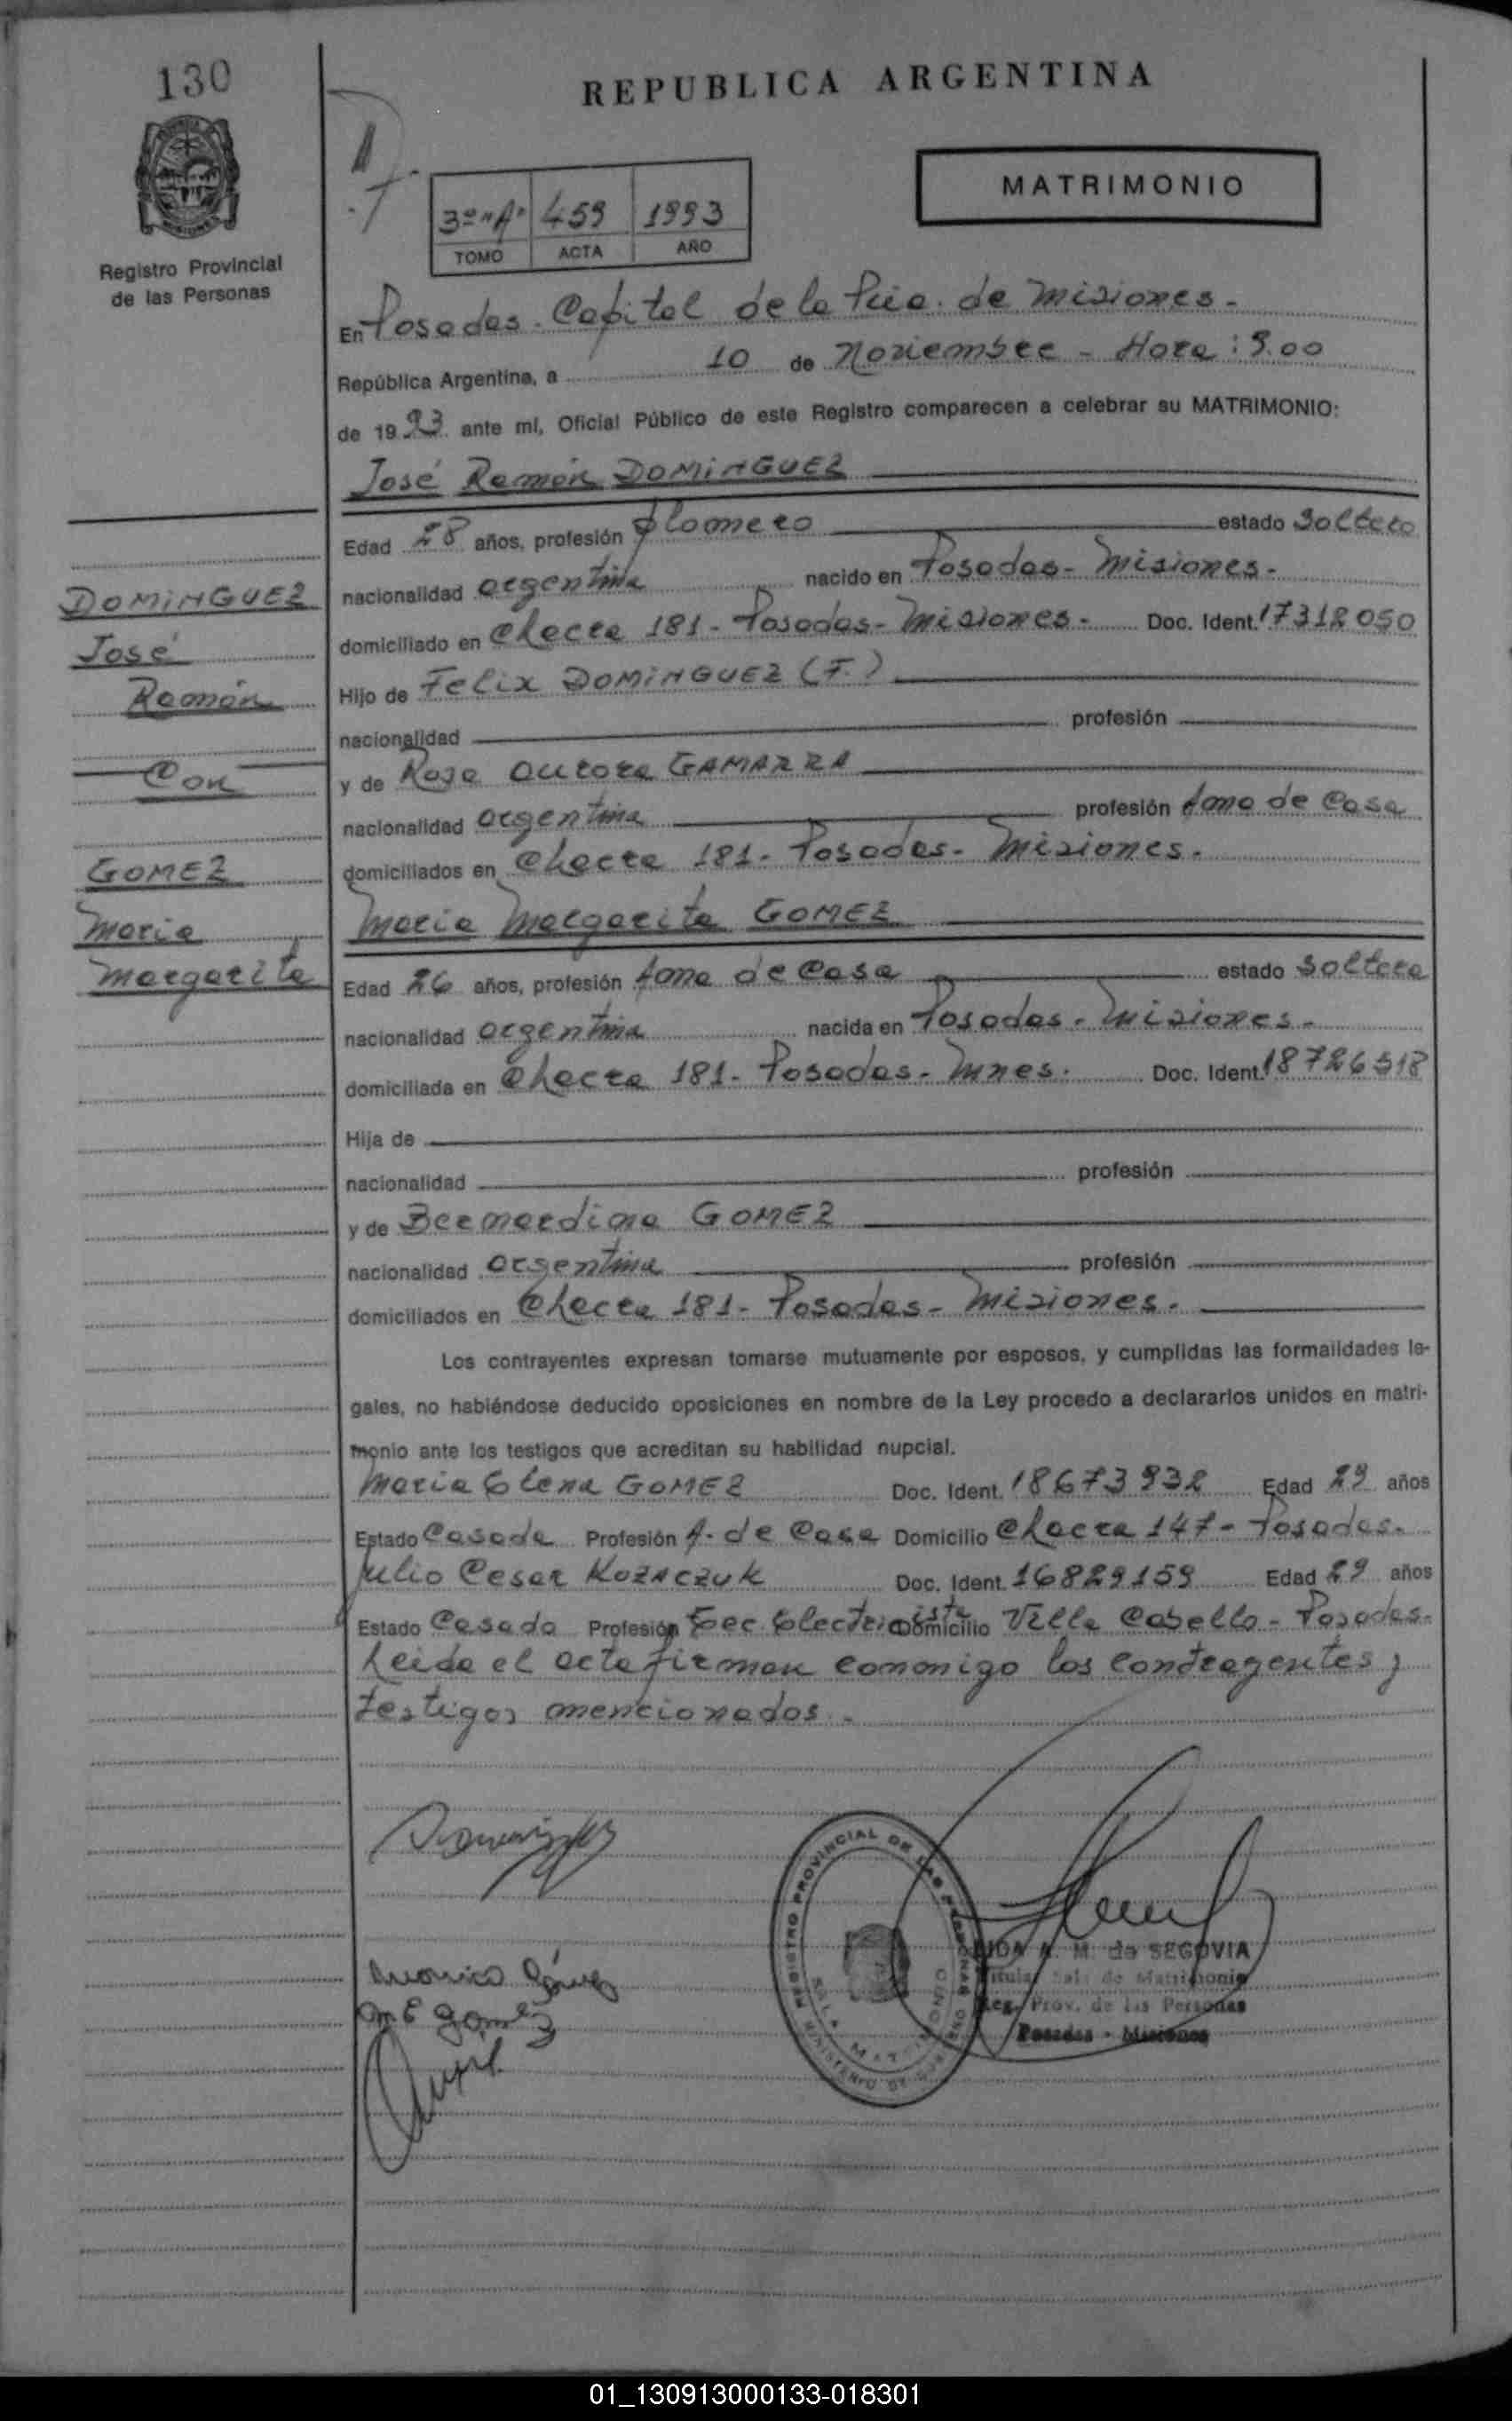 130
REPUBLICA ARGENTINA
MATRIMONIO
3º "A" 459 1993
TOMO ACTA AÑO
Registro Provincial
de las Personas
En Posadas - Capital de la Pcia. de Misiones -
República Argentina, a 10 de Noviembre - Hora: 9.00
de 1993 ante mí, Oficial Público de este Registro comparecen a celebrar su MATRIMONIO:
José Ramón DOMINGUEZ
Edad 28 años, profesión plomero estado Soltero
nacionalidad argentina nacido en Posadas - Misiones -
domiciliado en Chacra 181 - Posadas - Misiones - Doc. Ident. 17312050
Hijo de Felix DOMINGUEZ (F.)
nacionalidad profesión
y de Rosa Aurora GAMARRA
nacionalidad argentina profesión Ama de Casa
domiciliados en Chacra 181 - Posadas - Misiones -
Maria Margarita GOMEZ
Edad 26 años, profesión Ama de Casa estado Soltera
nacionalidad argentina nacida en Posadas - Misiones -
domiciliada en Chacra 181 - Posadas - Mnes. Doc. Ident. 18726518
Hija de
nacionalidad profesión
y de Bernardina GOMEZ
nacionalidad argentina profesión
domiciliados en Chacra 181 - Posadas - Misiones -
Los contrayentes expresan tomarse mutuamente por esposos, y cumplidas las formalidades le-
gales, no habiéndose deducido oposiciones en nombre de la Ley procedo a declararlos unidos en matri-
monio ante los testigos que acreditan su habilidad nupcial.
Maria Elena GOMEZ Doc. Ident. 18673932 Edad 29 años
Estado Casada Profesión A. de Casa Domicilio Chacra 147 - Posadas -
Julio Cesar KOZACZUK Doc. Ident. 16829159 Edad 29 años
Estado Casado Profesión Tec. Electricista Domicilio Villa Cabello - Posadas -
Leida el acta firman conmigo los contrayentes y
testigos mencionados -
DOMINGUEZ
José
Ramón
Con
GOMEZ
Maria
Margarita
M E Gomez
REGISTRO PROVINCIAL DE LAS PERSONAS
SALA MATRIMONIO
MINISTERIO DE GOBIERNO
A. M. de SEGOVIA
Titular Sala de Matrimonio
Reg. Prov. de las Personas
Posadas - Misiones
01_130913000133-018301